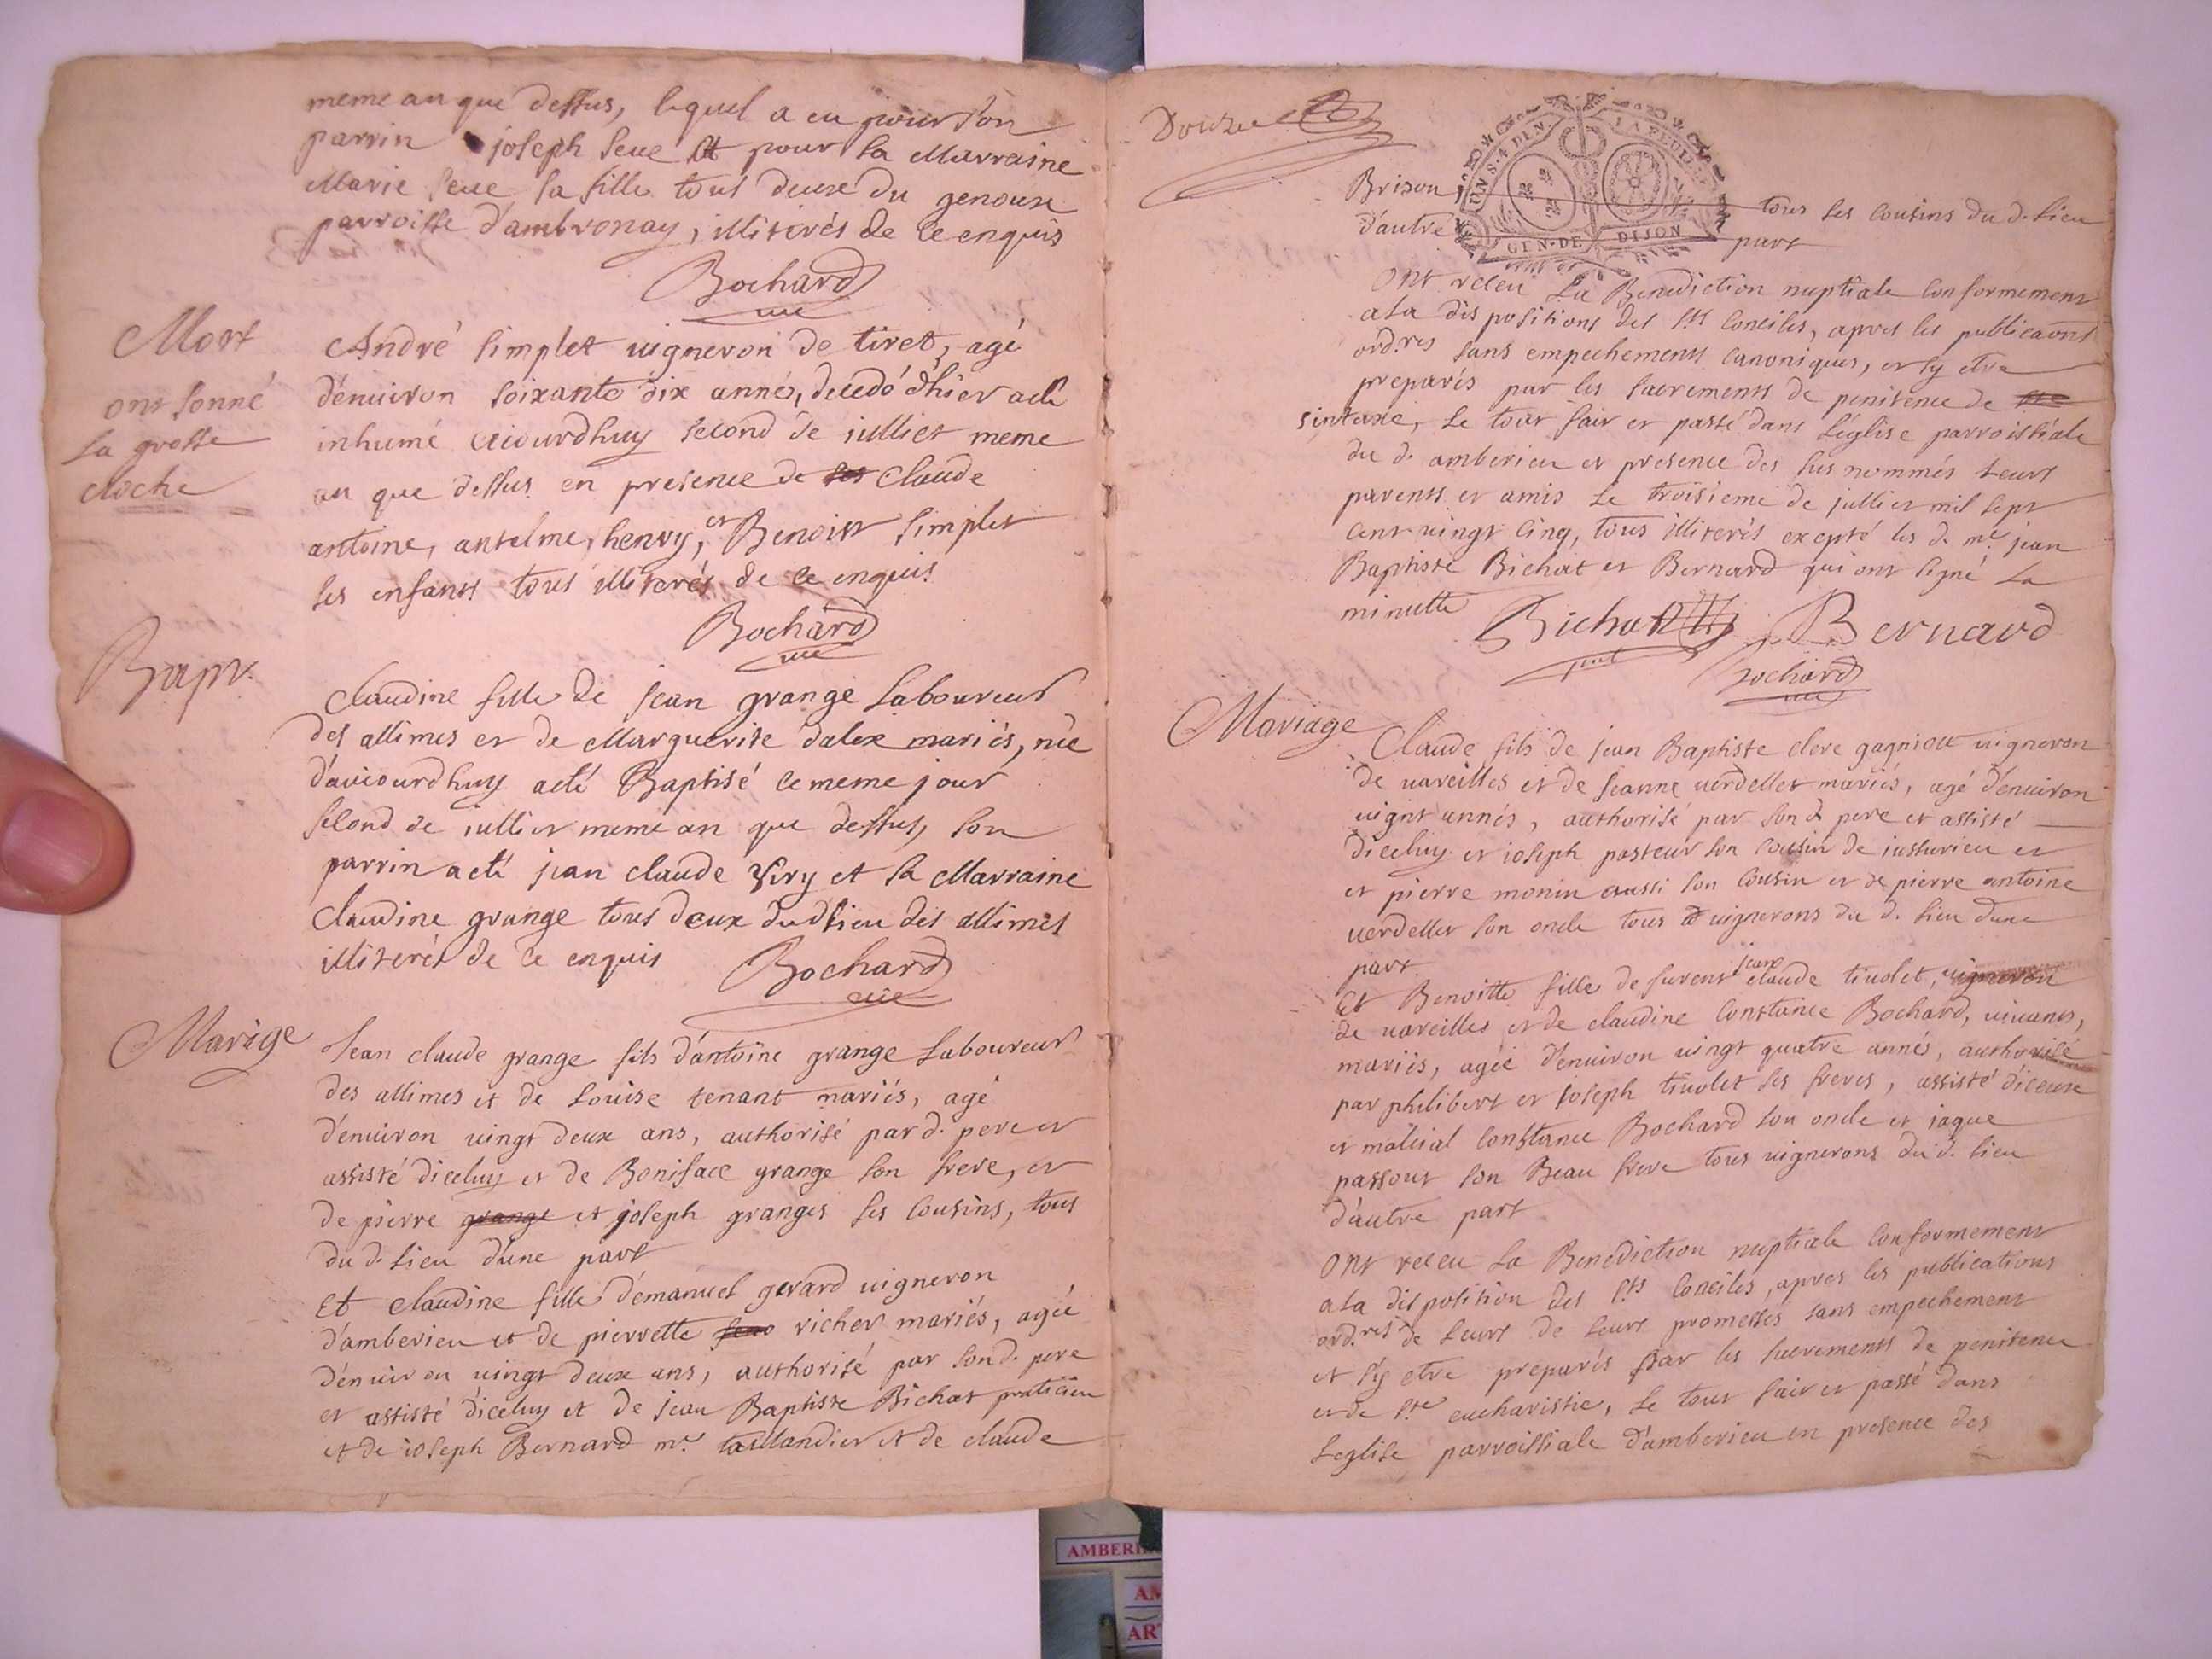 meme an que dessus, lequel a eu pour son
parrin joseph seue et pour sa Marraine
Marie seue sa fille tous deux du genoux
parroisse d'ambronay, illiterés de ce enquis
Bochard
curé
Mort
ont sonné
la grosse
cloche
André simplet uigneron de tiret, agé
d'enuiron soixante dix annés, decedé d'hier a eté
inhumé aujourdhuy second de julliet meme
an que dessus en presence de Claude
antoine, anselme, henry, et Benoist simplet
ses enfants tous illiterés de ce enquis
Bochard
curé
Bapt.
Claudine fille de jean grange Laboureur
des allimes et de Marguerite dalex mariés, née
d'aujourdhuy a eté Baptisé le meme jour
second de iulliet meme an que dessus, son
parrin a eté jean claude Viry et sa Marraine
Claudine grange tous deux dud lieu des allimes
illiterés de ce enquis
Bochard
curé
Mariage
Jean claude grange fils d'antoine grange Laboureur
des allimes et de Louise tenant mariés, agé
d'enuiron uingt deux ans, authorisé par d. pere et
assisté diceluy et de Boniface grange son frere, et
de pierre grange et joseph granges ses cousins, tous
du d. lieu d'une part
Et claudine fille d'émanuel gerard uigneron
d'amberieu et de pierrette richer mariés, agée
d'enuiron uingt deux ans, authorisé par son d. pere
et assisté diceluy et de jean Baptiste Bichat praticien
et de ioseph Bernard me. taillandier et de claude
Douze
UN S. 4 DEN. LA FEUIL
GEN. DE DIJON
Brison, tous ses cousins du d. lieu
d'autre part
ont receu La Benediction nuptiale conformement
a la dispositions des sts Conciles, apres les publicaons
ord.res sans empechements canoniques, et sy etre
preparés par les sacrements de penitence de
sintaxe, Le tout fait et passé dans Léglise parroissiale
du d. amberieu et presence des sus nommés Leurs
parents et amis Le troisieme de julliet mil sept
cent uingt cinq, tous illiterés excepté les d. me. jean
Baptiste Bichat et Bernard qui ont signé La
minutte
Bichat Bernard
Bochard
curé
Mariage
Claude fils de jean Baptiste clere gagniou uigneron
de uareilles et de jeanne uerdellet mariés, agé d'enuiron
uignt annés, authorisé par son d. pere et assisté
diceluy et ioseph pasteur son cousin de iussurieu et
et pierre monin aussi son cousin et de pierre antoine
uerdellet son oncle tous uignerons du d. lieu dune
part
Et Benoitte fille de furent jean claude tiuolet, uigneron
de uareilles et de claudine Constance Bochard, uiuants,
mariés, agée d'enuiron uingt quatre annés, authorisé
par philibert et joseph tiuolet ses freres, assisté d'iceux
et matieal Constance Bochard son oncle et jaque
passout son Beau frere tous uignerons du d. lieu
d'autre part
ont receu La Benediction nuptiale conformement
a La disposition des sts Conciles, apres les publications
ord.res de Leurs de Leurs promesses sans empechement
et s'y etre preparés par les sacrements de penitence
et de ste eucharistie, Le tout fait et passé dans
Leglise parroissiale d'amberieu en presence des
AM
AR